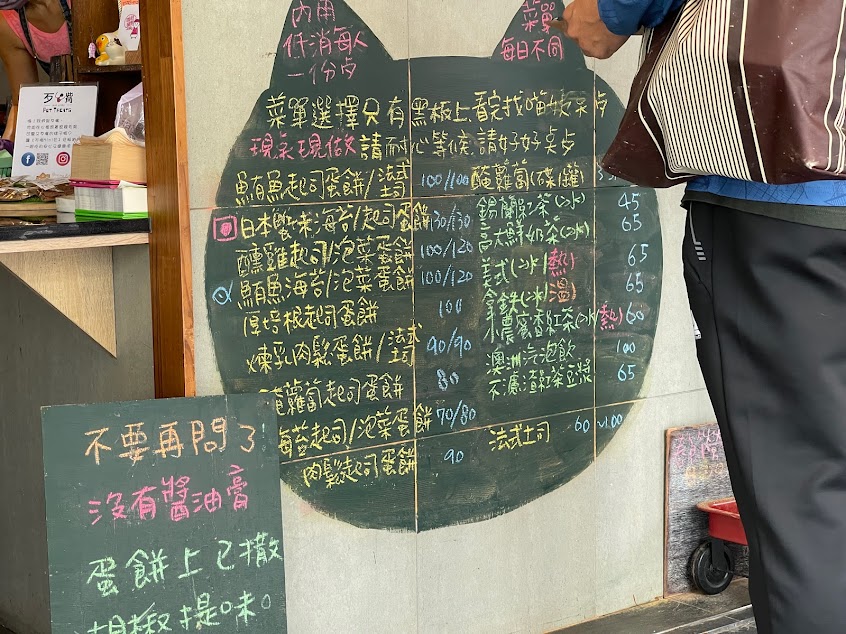 內用
低消每人
一份点
菜單
每日不同
菜單選擇只有黑板上,看完找喵姊呆点
現桌現做 請耐心等候,請好好桌点
鮪魚起司蛋餅/法式吐司 100/100
日本蟹味海苔/起司蛋餅 130/130
醺雞起司/泡菜蛋餅 100/120
鮪魚海苔/泡菜蛋餅 100/120
厚培根起司蛋餅 100
煉乳肉鬆蛋餅/法式吐司 90/90
醃蘿蔔起司蛋餅 80
海苔起司/泡菜蛋餅 70/80
肉鬆起司蛋餅 90
醃蘿蔔(碟/罐)
錫蘭奶茶(冰) 45
高大鮮奶茶(冰) 65
美式(冰/熱) 65
拿鉄(冰/溫) 65
小農蜜香紅茶(冰/熱) 60
澳洲汽泡飲 100
不濾渣紅茶豆漿 65
法式土司 60
歹嘴
不要再問了
沒有醬油膏
蛋餅上已撒
胡椒提味。